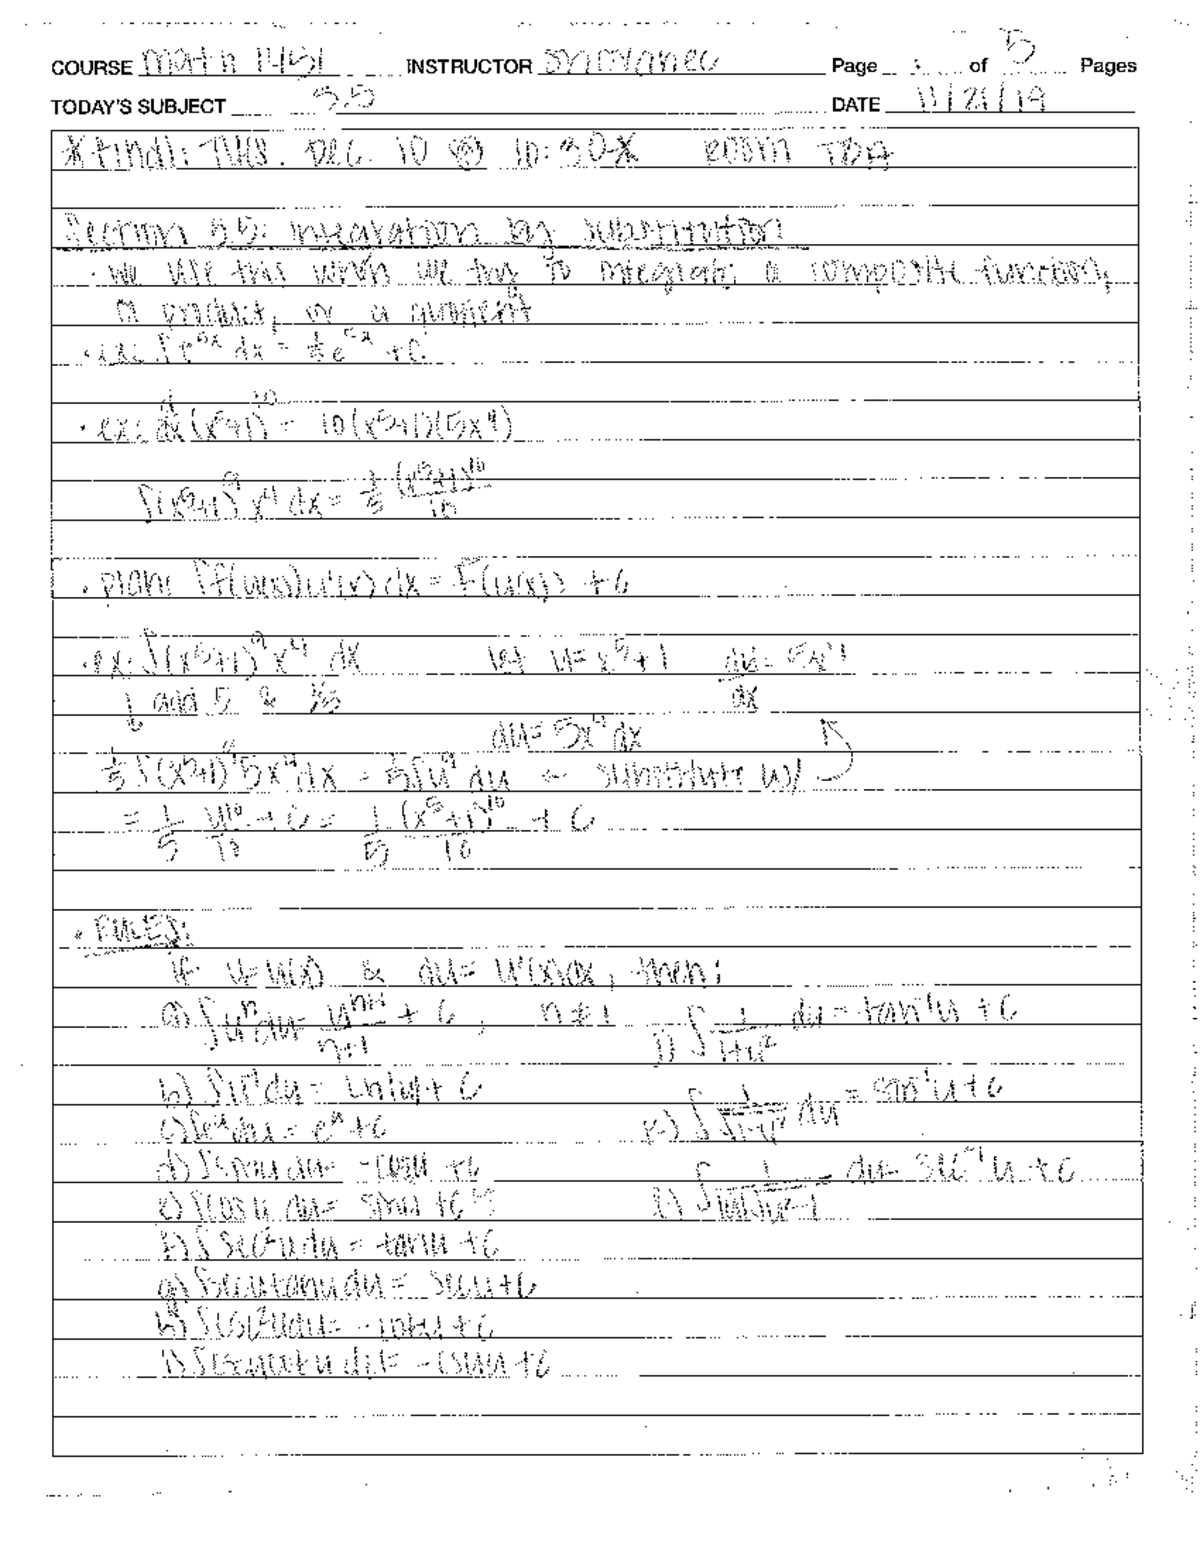 COURSE math 1451 INSTRUCTOR Page of 5 Pages
TODAY'S SUBJECT 5.5 DATE 11/21/19
*final: Tues. Dec. 10 @ 10:30* room TBA
Section 5.5: integration by substitution
· we use this when we try to integrate a composite function,
a product, or a quotient
· ex: ∫e^5x dx = 1/5 e^5x + C
· ex: d/dx (x^5+1)^10 = 10(x^5+1)(5x^4)
∫(x^5+1)^9 x^4 dx = 1/5 (x^5+1)^10/10
· plan: ∫f(u(x))u'(x) dx = F(u(x)) + C
· ex: ∫(x^5+1)^9 x^4 dx let u = x^5+1 du/dx = 5x^4
↓ add 5 & 1/5
du = 5x^4 dx
1/5 ∫(x^5+1)^9 5x^4 dx = 1/5 ∫u^9 du ← substitute w/
= 1/5 u^10/10 + C = 1/5 (x^5+1)^10/10 + C
· RULES:
if u = u(x) & du = u'(x)dx, then:
a) ∫u^n du = u^n+1/n+1 + C, n ≠ 1 j) ∫1/1+u^2 du = tan^-1 u + C
b) ∫u^-1 du = ln|u| + C
k) ∫1/√1-u^2 du = sin^-1 u + C
c) ∫e^u du = e^u + C
d) ∫sin u du = -cos u + C
l) ∫1/|u|√u^2-1 du = sec^-1 u + C
e) ∫cos u du = sin u + C
f) ∫sec^2 u du = tan u + C
g) ∫sec u tan u du = sec u + C
h) ∫csc^2 u du = -cot u + C
i) ∫csc u cot u du = -csc u + C